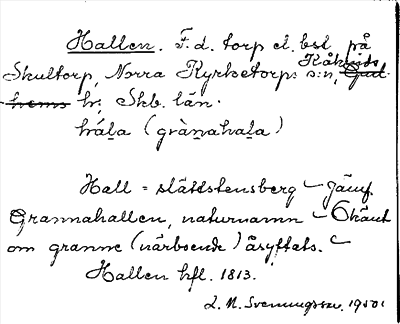 Hallen. F.d. torp el. bst. på
Skultorp, Norra Kyrketorps s:n, Kåkinds
hd, Skb. län.
háḷa (grànahaḷa)
Hall = slättstensberg – Jämf.
Grannahallen, naturnamn –
om granne (närboende) åsyftats.
Hallen hfl. 1813.
L. M. Svenungsson. 1950.